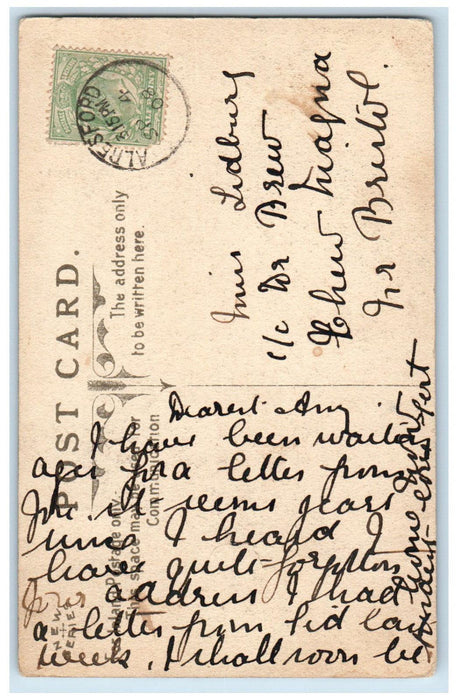 POST CARD.
The address only
to be written here.
ALRESFORD
8 15 PM
Miss Lidbury
c/c Dr Brew
Chew Magna
Nr Bristol.
NEW
SERIES
this space may be used for
Communication
Dearest Amy
I have been waiting
ages for a letter from
you it seems years
since I heard I
have quite forgotten
your address I had
a letter from Lid last
week, I shall soon be
home
fondest love